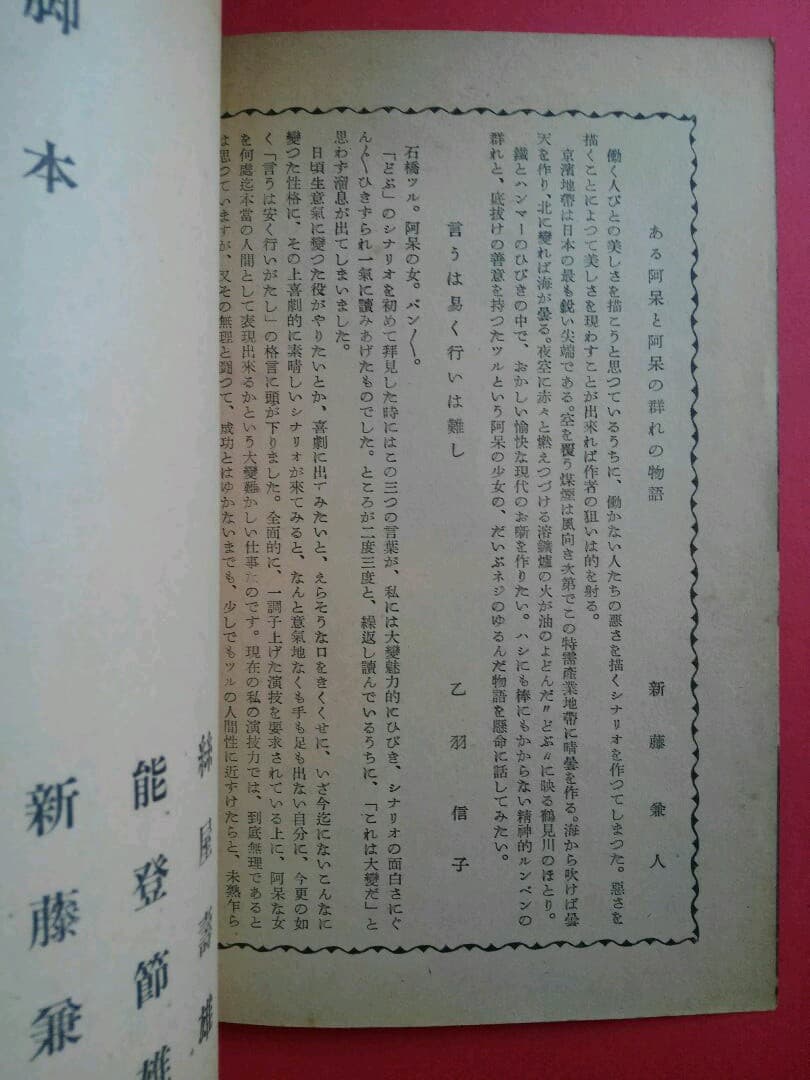 ある阿呆と阿呆の群れの物語
新藤兼人
働く人びとの美しさを描こうと思つているうちに、働かない人たちの悪さを描くシナリオを作つてしまつた。惡さを
描くことによつて美しさを現わすことが出來れば作者の狙いは的を射る。
京濱地帶は日本の最も鋭い尖端である。空を覆う煤煙は風向き次第でこの特需産業地帶に晴曇を作る。海から吹けば曇
天を作り、北に變れば海が曇る。夜空に赤々と燃えつづける溶鑛爐の火が油のよどんだ〝どぶ〟に映る鶴見川のほとり。
鐵とハンマーのひびきの中で、おかしい愉快な現代のお噺を作りたい。ハシにも棒にもかからない精神的ルンペンの
群れと、底抜けの善意を持つたツルという阿呆の少女の、だいぶネジのゆるんだ物語を懸命に話してみたい。
言うは易く行いは難し
乙羽信子
石橋ツル。阿呆の女。パン〳〵。
「どぶ」のシナリオを初めて拜見した時にはこの三つの言葉が、私には大變魅力的にひびき、シナリオの面白さにぐ
ん〳〵ひきずられ一氣に讀みあげたものでした。ところが二度三度と、繰返し讀んでいるうちに、「これは大變だ」と
思わず溜息が出てしまいました。
日頃生意氣に變つた役がやりたいとか、喜劇に出てみたいと、えらそうな口をきくくせに、いざ今迄にないこんなに
變つた性格に、その上喜劇的に素晴しいシナリオが來てみると、なんと意氣地なくも手も足も出ない自分に、今更の如
く「言うは安く行いがたし」の格言に頭が下りました。全面的に、一調子上げた演技を要求されている上に、阿呆な女
を何處迄本當の人間として表現出來るかという大變難かしい仕事なのです。現在の私の演技力では、到底無理であると
は思つていますが、又その無理と闘つて、成功とはゆかないまでも、少しでもツルの人間性に近ずけたらと、未熟乍ら
脚本
絲屋壽雄
能登節雄
新藤兼